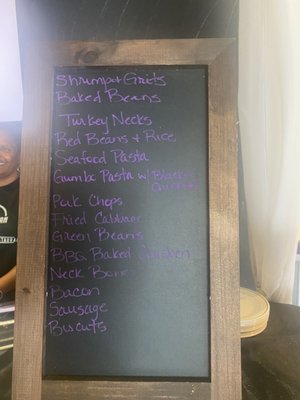 Shrimp & Grits
Baked Beans
Turkey Necks
Red Beans & Rice
Seafood Pasta
Gumbo Pasta w/ Blacken
Chicken
Pork Chops
Fried Cabbage
Green Beans
BBQ Baked Chicken
Neck Bones
Bacon
Sausage
Biscuits